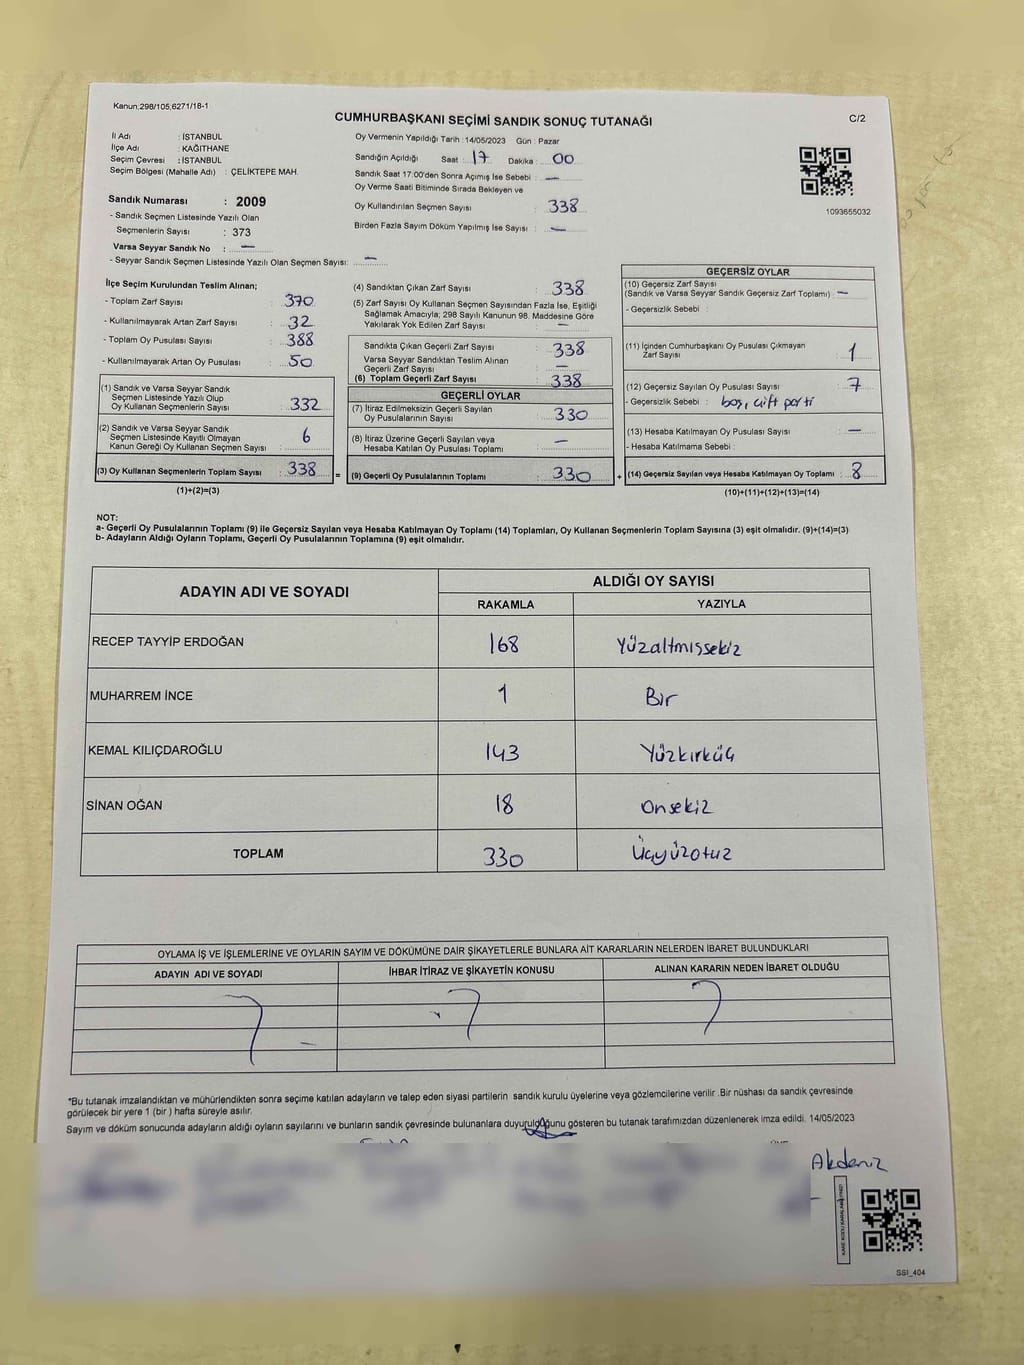 Kanun:298/105;6271/18-1
CUMHURBAŞKANI SEÇİMİ SANDIK SONUÇ TUTANAĞI
C/2
İl Adı : İSTANBUL
İlçe Adı : KAĞITHANE
Seçim Çevresi : İSTANBUL
Seçim Bölgesi (Mahalle Adı) : ÇELİKTEPE MAH.
Oy Vermenin Yapıldığı Tarih : 14/05/2023 Gün : Pazar
Sandığın Açıldığı Saat : 17 Dakika : 00
Sandık Saat 17:00'den Sonra Açımış İse Sebebi : —
Oy Verme Saati Bitiminde Sırada Bekleyen ve
Oy Kullandırılan Seçmen Sayısı : 338
Birden Fazla Sayım Döküm Yapılmış İse Sayısı : —
1093655032
Sandık Numarası : 2009
- Sandık Seçmen Listesinde Yazılı Olan
Seçmenlerin Sayısı : 373
Varsa Seyyar Sandık No : —
- Seyyar Sandık Seçmen Listesinde Yazılı Olan Seçmen Sayısı: —
İlçe Seçim Kurulundan Teslim Alınan;
- Toplam Zarf Sayısı : 370
- Kullanılmayarak Artan Zarf Sayısı : 32
- Toplam Oy Pusulası Sayısı : 388
- Kullanılmayarak Artan Oy Pusulası : 50
(1) Sandık ve Varsa Seyyar Sandık
Seçmen Listesinde Yazılı Olup
Oy Kullanan Seçmenlerin Sayısı : 332
(2) Sandık ve Varsa Seyyar Sandık
Seçmen Listesinde Kayıtlı Olmayan
Kanun Gereği Oy Kullanan Seçmen Sayısı : 6
(3) Oy Kullanan Seçmenlerin Toplam Sayısı : 338 =
(1)+(2)=(3)
(4) Sandıktan Çıkan Zarf Sayısı : 338
(5) Zarf Sayısı Oy Kullanan Seçmen Sayısından Fazla İse, Eşitliği
Sağlamak Amacıyla; 298 Sayılı Kanunun 98. Maddesine Göre
Yakılarak Yok Edilen Zarf Sayısı : —
Sandıkta Çıkan Geçerli Zarf Sayısı : 338
Varsa Seyyar Sandıktan Teslim Alınan
Geçerli Zarf Sayısı : —
(6) Toplam Geçerli Zarf Sayısı : 338
GEÇERLİ OYLAR
(7) İtiraz Edilmeksizin Geçerli Sayılan
Oy Pusulalarının Sayısı : 330
(8) İtiraz Üzerine Geçerli Sayılan veya
Hesaba Katılan Oy Pusulaları Toplamı : —
(9) Geçerli Oy Pusulalarının Toplamı : 330 +
GEÇERSİZ OYLAR
(10) Geçersiz Zarf Sayısı
(Sandık ve Varsa Seyyar Sandık Geçersiz Zarf Toplamı) : —
- Geçersizlik Sebebi :
(11) İçinden Cumhurbaşkanı Oy Pusulası Çıkmayan
Zarf Sayısı : 1
(12) Geçersiz Sayılan Oy Pusulası Sayısı : 7
- Geçersizlik Sebebi : boş, çift parti
(13) Hesaba Katılmayan Oy Pusulası Sayısı : —
- Hesaba Katılmama Sebebi :
(14) Geçersiz Sayılan veya Hesaba Katılmayan Oy Toplamı : 8
(10)+(11)+(12)+(13)=(14)
NOT:
a- Geçerli Oy Pusulalarının Toplamı (9) ile Geçersiz Sayılan veya Hesaba Katılmayan Oy Toplamı (14) Toplamları, Oy Kullanan Seçmenlerin Toplam Sayısına (3) eşit olmalıdır. (9)+(14)=(3)
b- Adayların Aldığı Oyların Toplamı, Geçerli Oy Pusulalarının Toplamına (9) eşit olmalıdır.
ADAYIN ADI VE SOYADI
ALDIĞI OY SAYISI
RAKAMLA YAZIYLA
RECEP TAYYİP ERDOĞAN 168 Yüzaltmışsekiz
MUHARREM İNCE 1 Bir
KEMAL KILIÇDAROĞLU 143 Yüzkırküç
SİNAN OĞAN 18 Onsekiz
TOPLAM 330 Üçyüzotuz
OYLAMA İŞ VE İŞLEMLERİNE VE OYLARIN SAYIM VE DÖKÜMÜNE DAİR ŞİKAYETLERLE BUNLARA AİT KARARLARIN NELERDEN İBARET BULUNDUKLARI
ADAYIN ADI VE SOYADI İHBAR İTİRAZ VE ŞİKAYETİN KONUSU ALINAN KARARIN NEDEN İBARET OLDUĞU
*Bu tutanak imzalandıktan ve mühürlendikten sonra seçime katılan adayların ve talep eden siyasi partilerin sandık kurulu üyelerine veya gözlemcilerine verilir .Bir nüshası da sandık çevresinde
görülecek bir yere 1 (bir ) hafta süreyle asılır.
Sayım ve döküm sonucunda adayların aldığı oyların sayılarını ve bunların sandık çevresinde bulunanlara duyurulduğunu gösteren bu tutanak tarafımızdan düzenlenerek imza edildi. 14/05/2023
Akdeniz
SSI_404